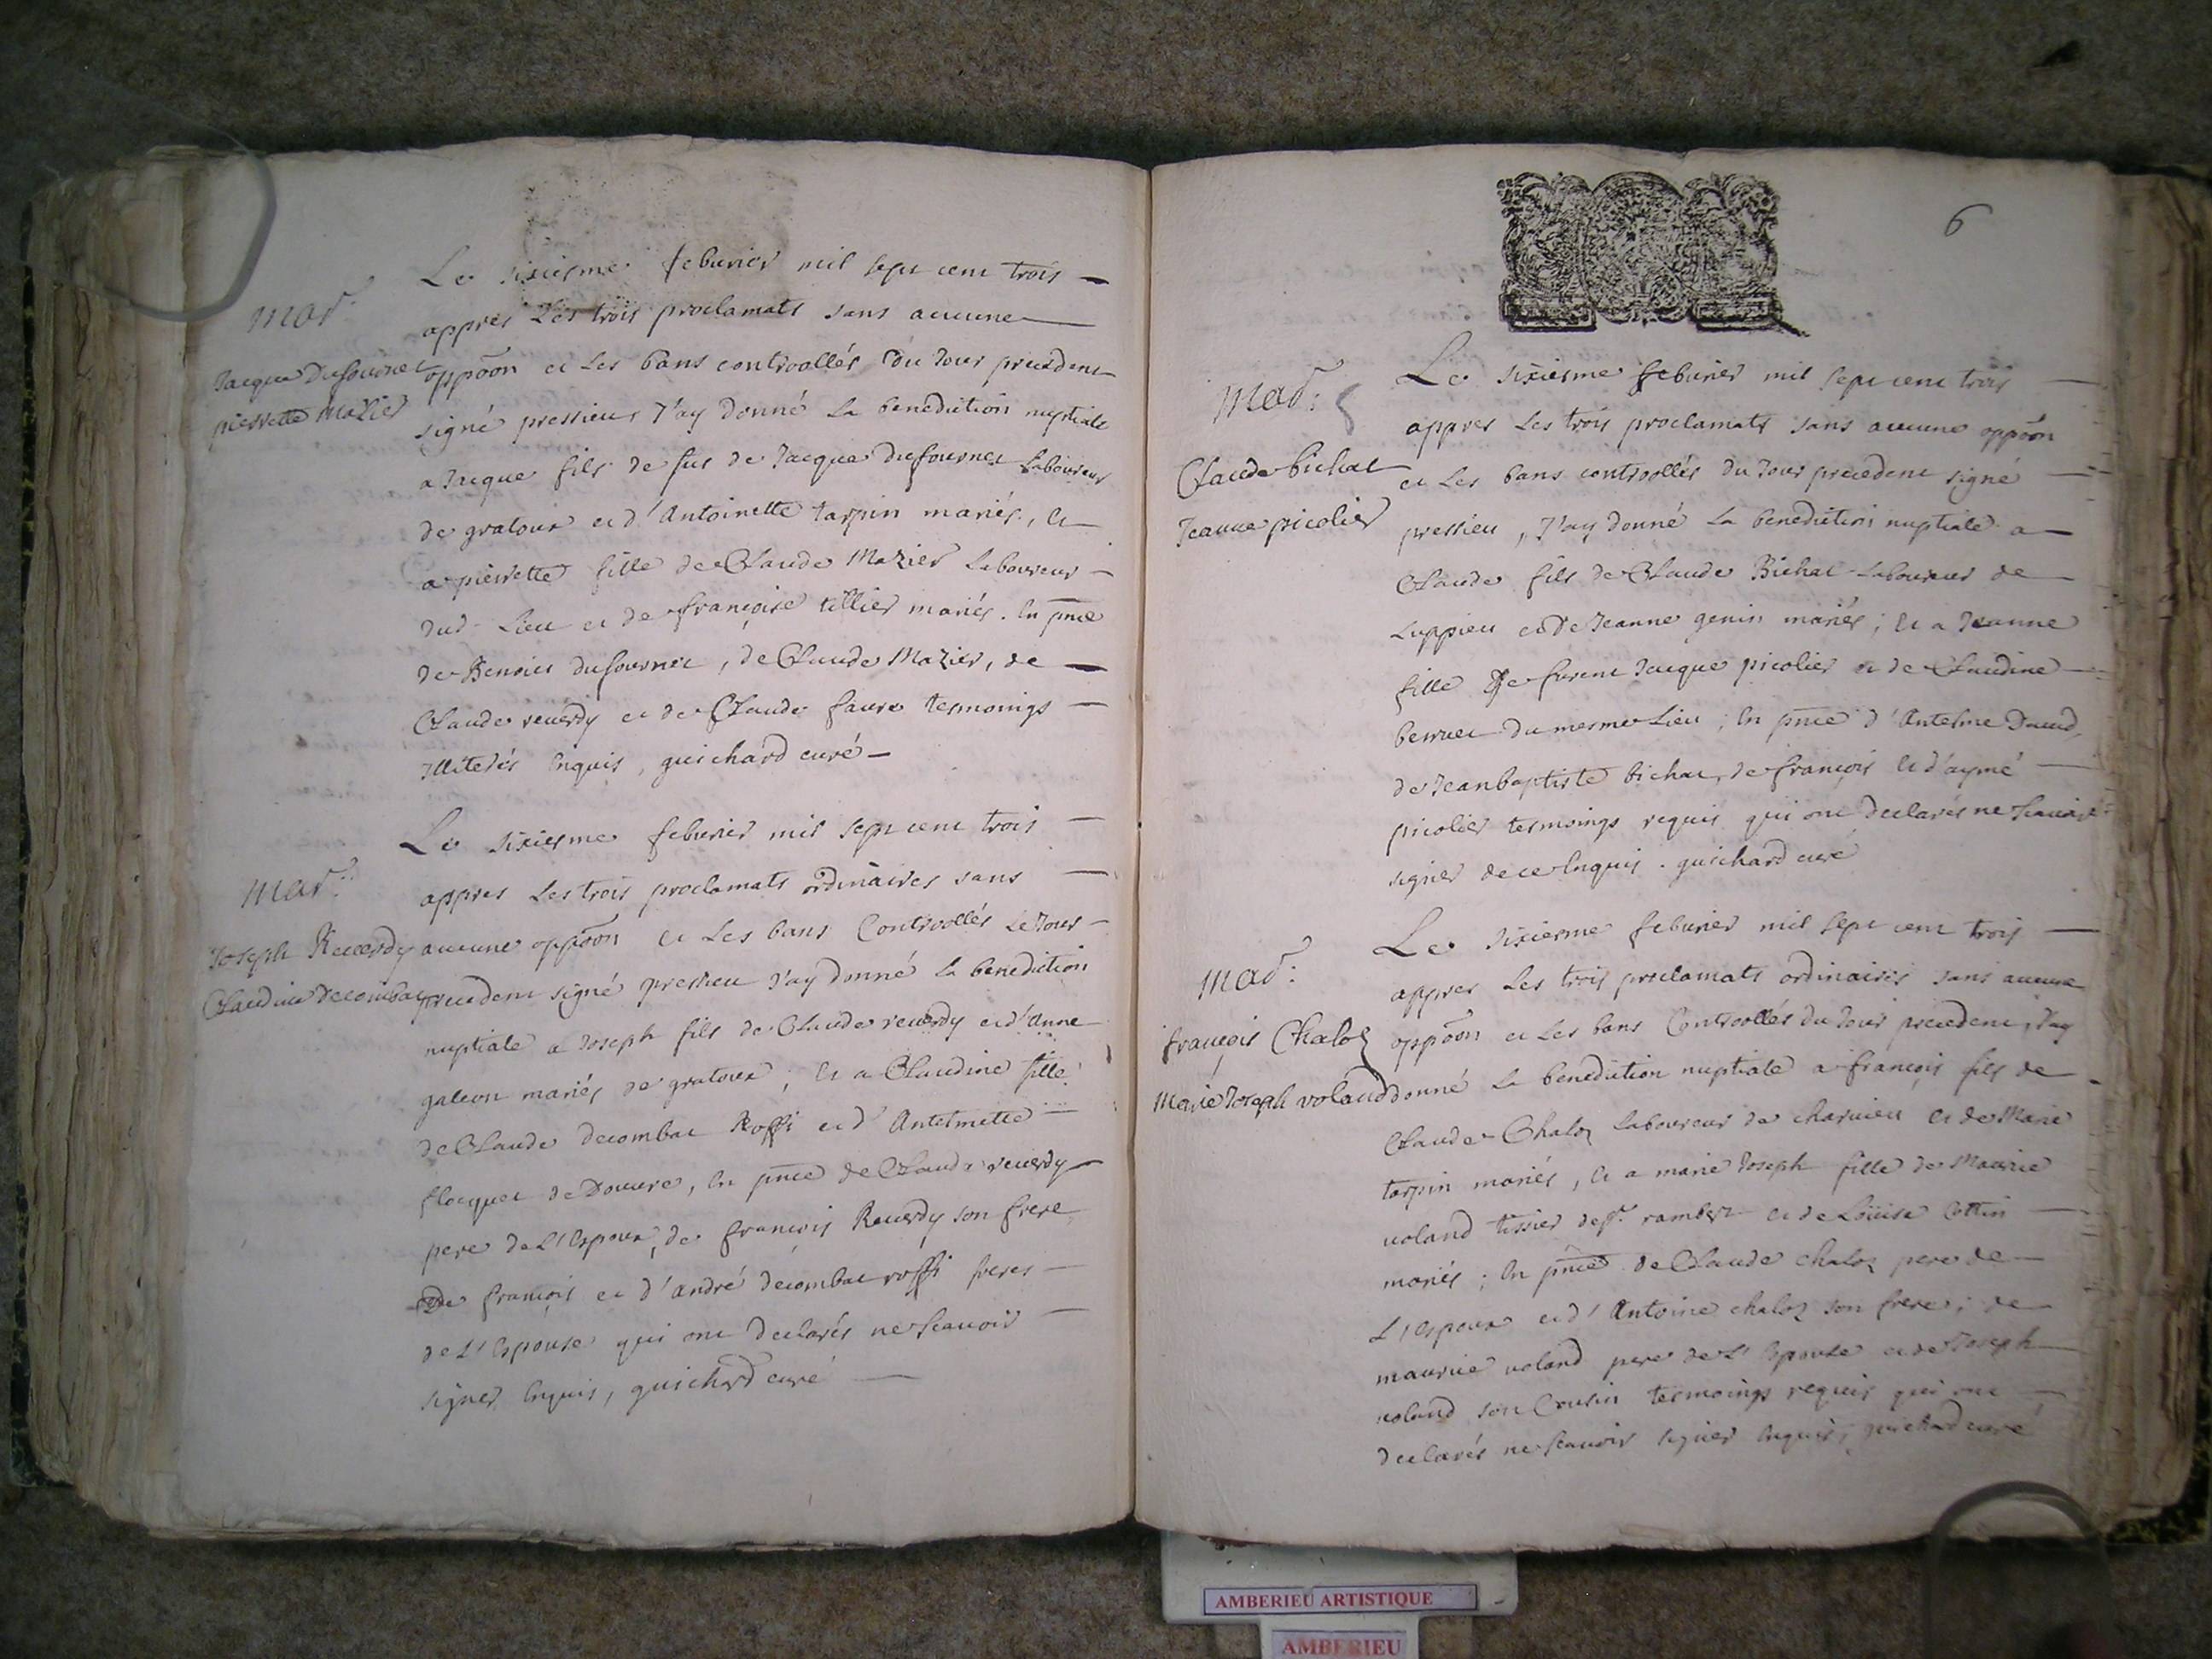 Mar:
Jacque Dufournet
pierrette Mazier
Le sixiesme feburier mil sept cent trois
appres Les trois proclamats sans aucune
oppōon et Les bans controollés du Jour precedent
signé pressieu, J'ay donné La benediction nuptiale
a Jacque fils de fut de Jacque Dufournet Laboureur
de gratoux et d'Antoinette tarpin mariés, Et
a pierrette fille de Claude Mazier Laboureur
dud Lieu et de françoise tillier mariés. En pñce
de Benoict dufournet, de Claude Mazier, de
Claude reuerdy et de Claude faure tesmoings
Illiterés Enquis, guichard curé
Mar:
Joseph Reuerdy
Claudine Decombat
Le sixiesme feburier mil sept cent trois
appres Les trois proclamats ordinaires sans
aucune oppōon et Les bans Controollés Le Jour
precedent signé pressieu J'ay donné La benediction
nuptiale a Joseph fils de Claude reuerdy et d'Anne
galeon mariés de gratoux; Et a Claudine fille
de Claude decombat Roffi et d'Antelmette
floquet de Douure, En pñce de Claude reuerdy
pere de L'Espoux, de françois Reuerdy son frere
De françois et d'André decombat roffi freres
de L'Espouse qui ont declarés ne scauoir
signer Enquis, guichard curé
6
Mar:
Claude bichat
Jeanne picolier
Le sixiesme feburier mil sept cent trois
appres Les trois proclamats sans aucune oppōon
et Les bans controollés du Jour precedent signé
pressieu, J'ay donné La benediction nuptiale a
Claude fils de Claude Bichat Laboureur de
Luppieu et de Jeanne genin mariés; Et a Jeanne
fille De furent Jacque picolier et de Claudine
berruet du mesme Lieu; En pñce d'Antelme Dauid,
de Jean baptiste bichat, de françois Et d'aymé
picolier tesmoings requis qui ont declarés ne scauoir
signer de ce Enquis. guichard curé
Mar:
françois Chaloz
Marie Joseph voland
Le sixiesme feburier mil sept cent trois
appres Les trois proclamats ordinaires sans aucune
oppōon et Les bans Controollés du Jour precedent, J'ay
donné La benediction nuptiale a françois fils de
Claude Chaloz Laboureur de charuieu et de Marie
tarpin mariés, Et a marie Joseph fille de Maurice
voland tissier de St. rambert et de Loüise Cottin
mariés; En pñce de Claude chaloz pere de
L'Espoux et d'Antoine chaloz son frere; de
maurice voland pere de L'Espouse et de Joseph
voland son Cousin tesmoings requis qui ont
declarés ne scauoir signer Enquis, guichard curé
AMBERIEU ARTISTIQUE
AMBERIEU